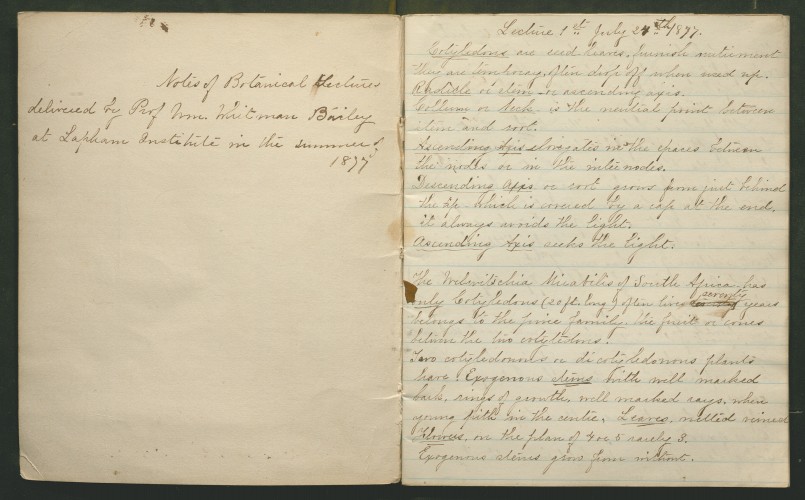 Notes of Botanical Lectures
delivered by Prof Wm. Whitman Bailey
at Lapham Institute in the summer of
1877
Lecture 1st July 24th 1877.
Cotyledons are seed leaves, furnish nutriment
they are temporary, often drop off when used up.
Plantlet or stem or ascending axis.
Collum or Neck is the neutral point between
stem and root.
Ascending Axis elongates in the spaces between
the nodes or in the internodes.
Descending Axis or root grows from just behind
the tip which is covered by a cap at the end.
it always avoids the light.
Ascending Axis seeks the light.
The Welwitschia Mirabilis of South Africa has
only Cotyledons (20 ft. long) often lives seventy years
belongs to the pine family. the fruit or cones
below the two cotyledons.
Two cotyledonous or dicotyledonous plants
have Exogenous stems with well marked
bark, rings of growth, well marked rays, when
young pith in the centre, Leaves, netted veined
Flowers, on the plan of 4 or 5 rarely 3.
Exogenous stems grow from without.